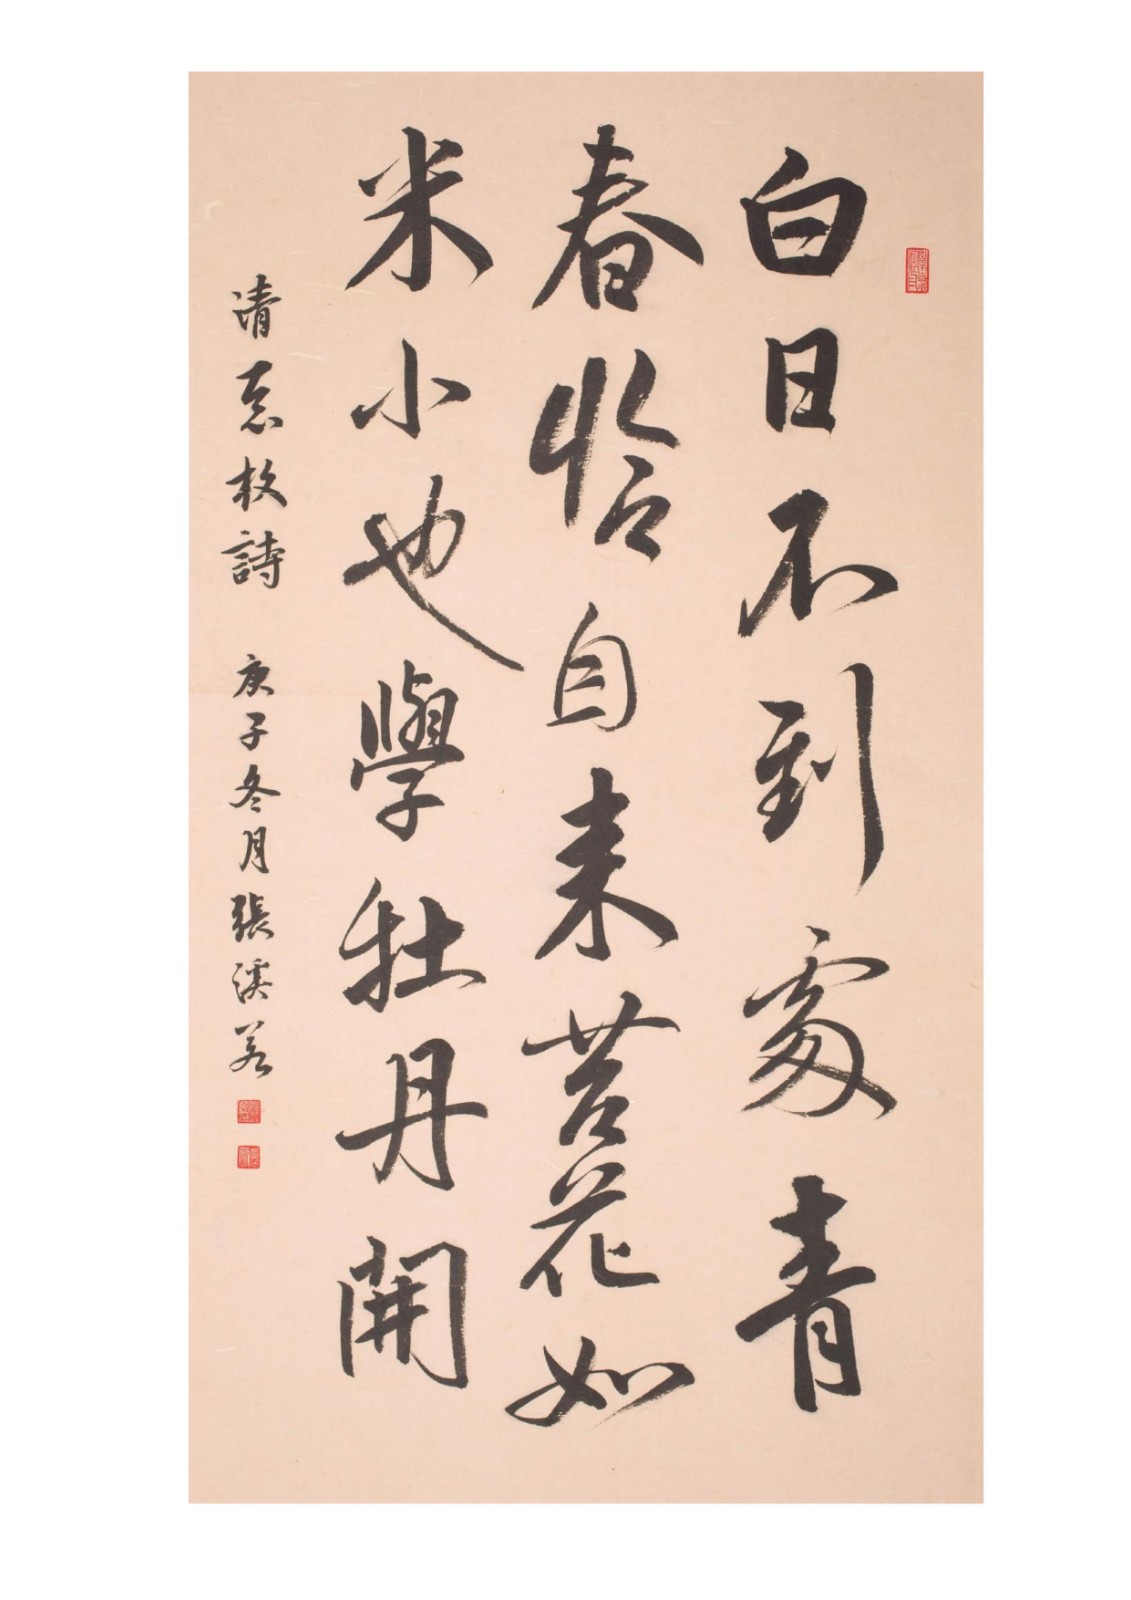 白日不到處青
春恰自来苔花如
米小也學牡丹開
清袁枚詩 庚子冬月張溪若